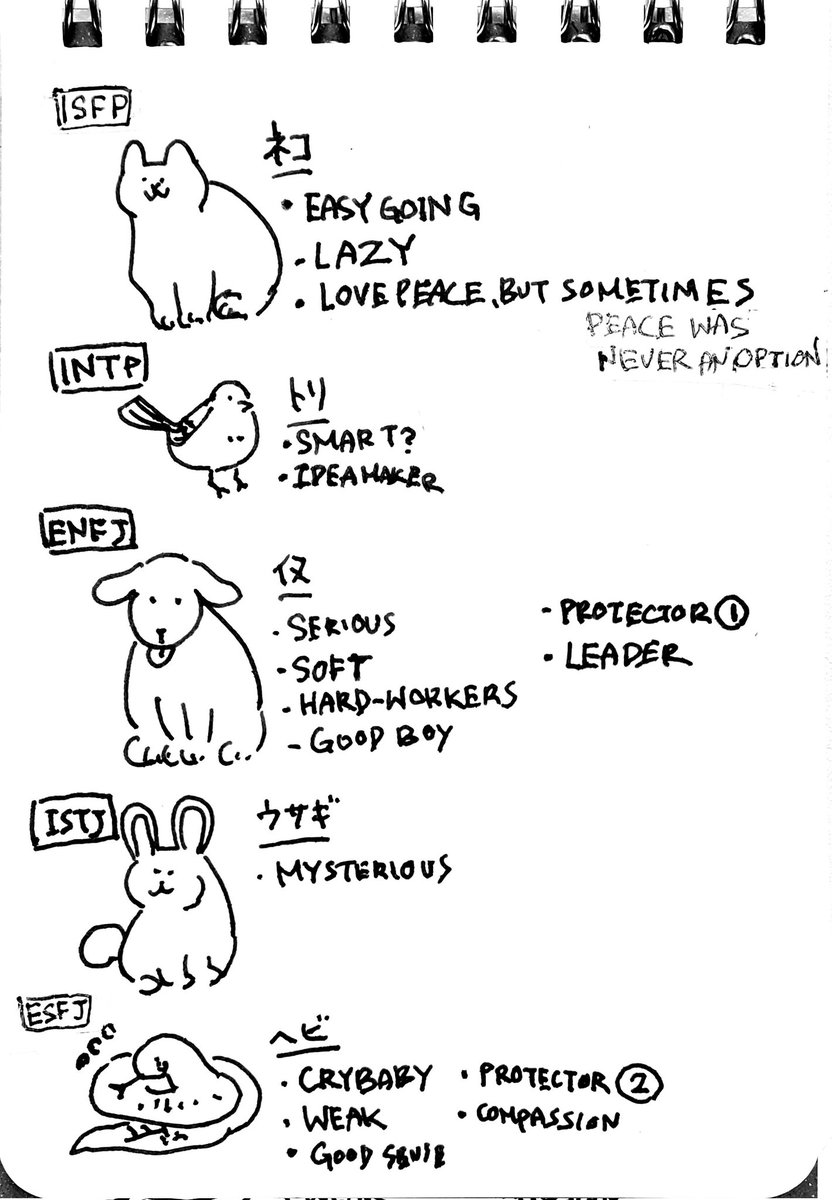 ISFP
ネコ
• EASY GOING
• LAZY
• LOVE PEACE, BUT SOMETIMES
PEACE WAS
NEVER AN OPTION
INTP
トリ
• SMART?
• IDEA MAKER
ENFJ
イヌ
• SERIOUS
• SOFT
• HARD-WORKERS
- GOOD BOY
- PROTECTOR ①
• LEADER
ISTJ
ウサギ
• MYSTERIOUS
ESFJ
ヘビ
• CRYBABY
• WEAK
• GOOD
• PROTECTOR ②
• COMPASSION